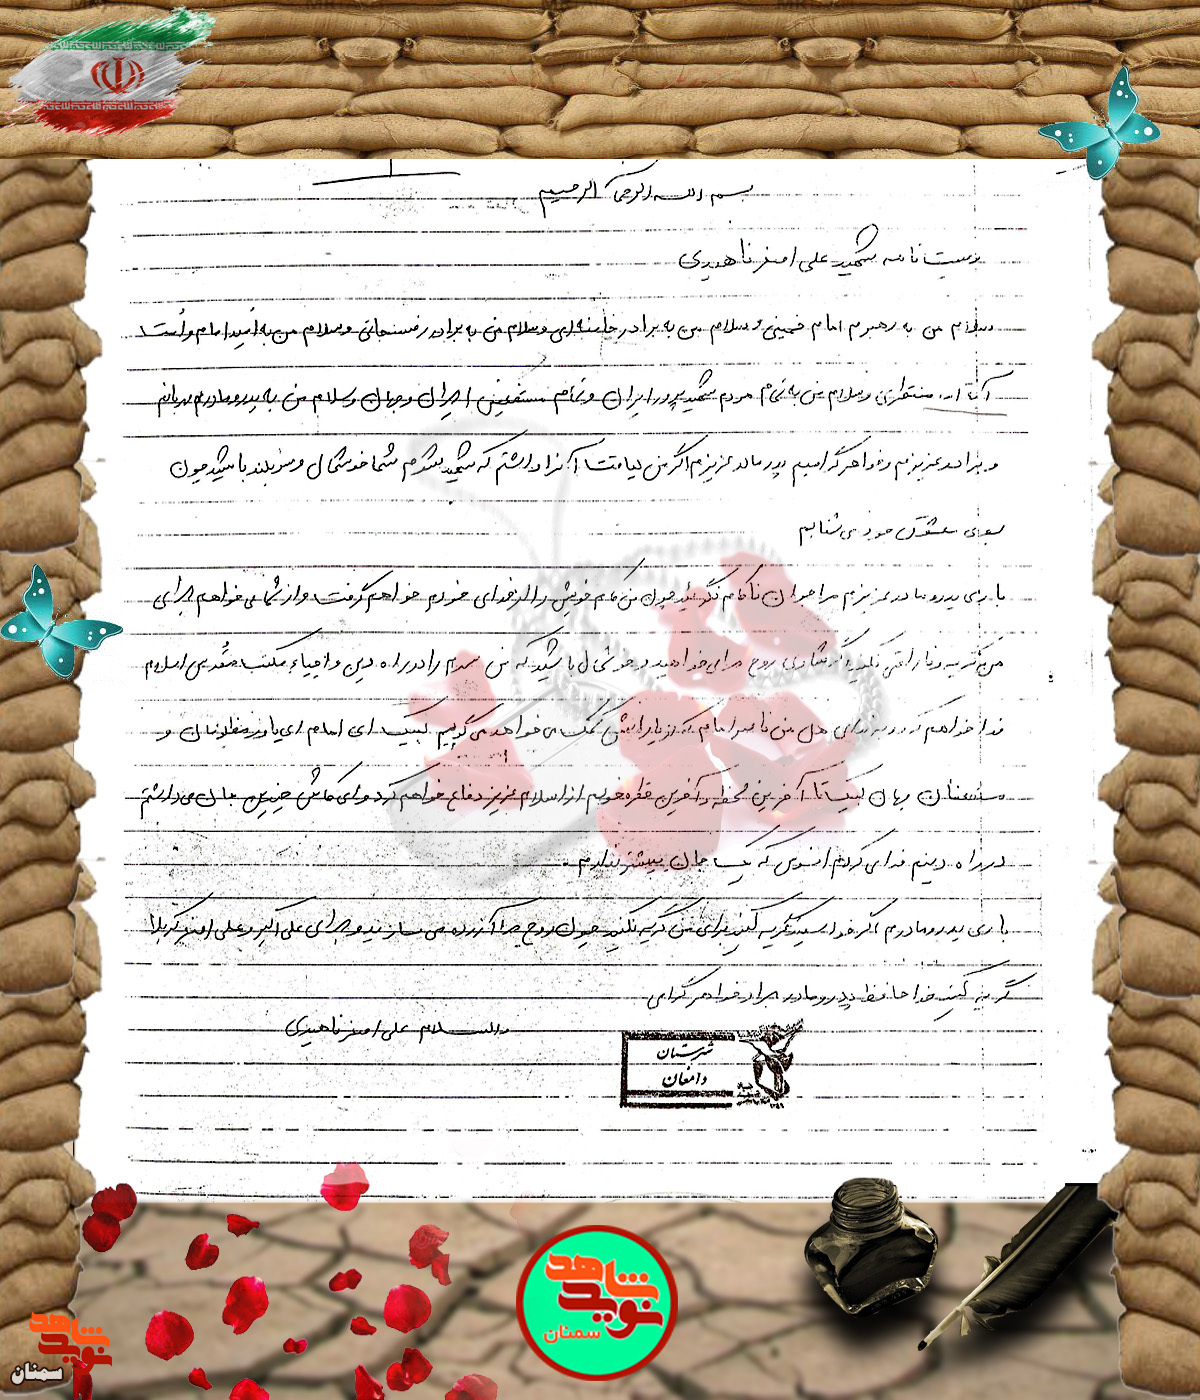 بسم الله الرحمن الرحیم
وصیت نامه شهید علی اصغر ناهیدی
سلام من به رهبرم امام خمینی و سلام من به برادر خامنه‌ای و سلام من به برادر رفسنجانی و سلام من به امید امام و امت
آیت ا... منتظری و سلام من به تمام مردم شهیدپرور ایران و تمام مستضعفین ایران و جهان و سلام من به پدر و مادرم
و برادر عزیزم و خواهر گرامیم پدر مادر عزیزم اگر من لیاقت آنرا داشتم که شهید بشوم شما خوشحال و سربلند باشید چون
بسوی معشوق خود می شتابم
باری پدر و مادر عزیزم مرا جوان ناکام نگوئید چون من کام خویش را از خدای خودم خواهم گرفت و از شما می خواهم برای
من گریه و ناراحتی نکنید اگر شادی روح مرا می خواهید و خوشحال باشید که من سرم را در راه دین و احیاء مکتب مقدس اسلام
فدا خواهم کرد و به ندای هل من ناصر امام که از یارانش کمک می خواهد می گویم لبیک ای امام ای یاور مظلومان و
مستضعفان جهان لبیک تا آخرین لحظه و آخرین قطره خونم از اسلام عزیز دفاع خواهم کرد و ای کاش چندین جان می داشتم
در راه دینم فدا می کردم افسوس که یک جان بیشتر ندارم.
باری پدر و مادرم اگر خواستید گریه کنید برای من گریه نکنید چون روح مرا آزرده می سازید و برای علی اکبر و علی اصغر کربلا
گریه کنید خدا حافظ پدر و مادر برادر خواهر گرامی
والسلام علی اصغر ناهیدی
شهرستان
دامغان
نوید شاهد
سمنان
نوید شاهد
سمنان